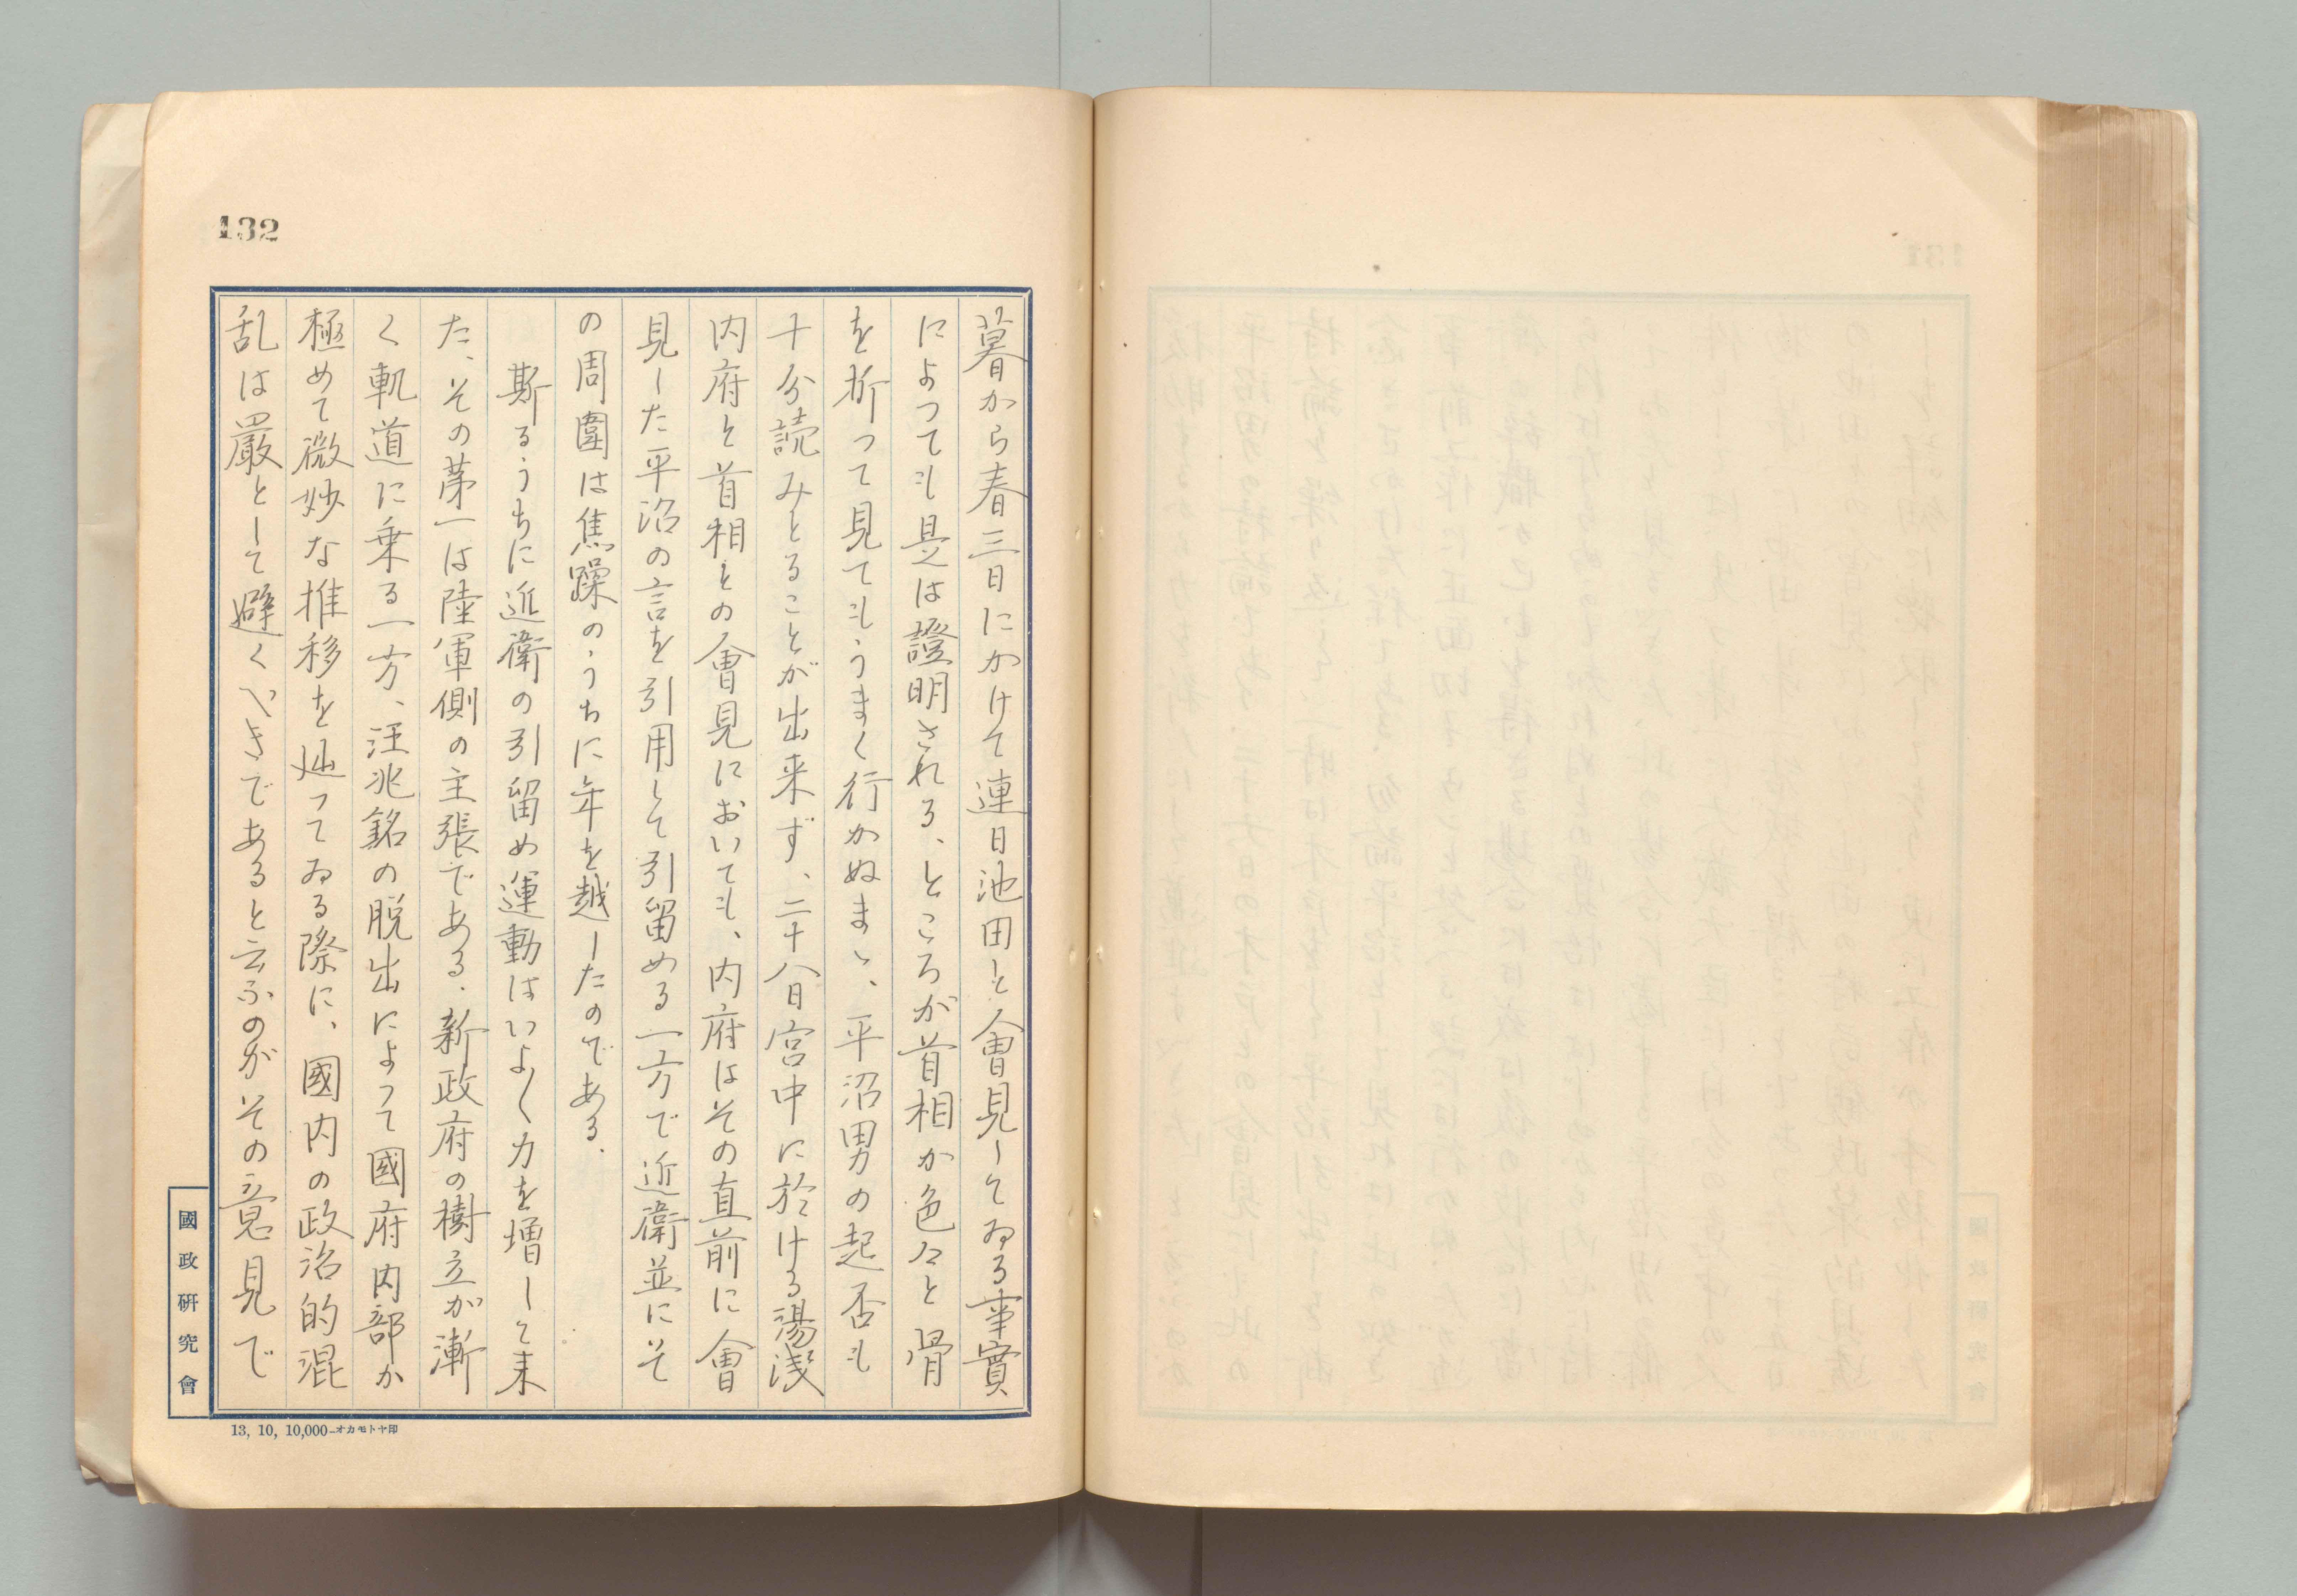 132
暮から春三日にかけて連日池田と會見してゐる事實
によっても是は證明される、ところが首相か色々と骨
を折って見てもうまく行かぬまゝ、平沼男の起否も
十分読みとることが出来ず、二十八日宮中に於ける湯淺
内府と首相との會見においても、内府はその直前に會
見した平沼の言を引用して引留める一方で近衛並にそ
の周圍は焦躁のうちに年を越したのである.
斯るうちに近衛の引留め運動はいよ〱力を増して来
た、その㐧一は陸軍側の主張である.新政府の樹立が漸
く軌道に乗る一方、汪兆銘の脱出によって國府内部か
極めて微妙な推移を辿ってゐる際に、國内の政治的混
乱は嚴として避くべきであると云ふのがその意見で
國政研究會
13, 10, 10,000—オカモトヤ印